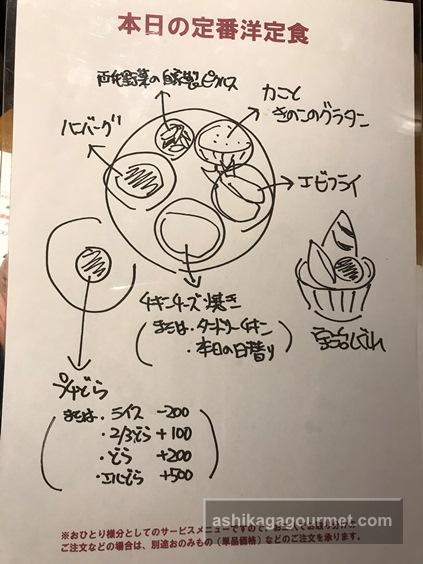 本日の定番洋定食
両毛野菜の自家製ピクルス
カニと
きのこのグラタン
ハンバーグ
エビフライ
チキンチーズ焼き
(または・タンドリーチキン
・本日の日替り)
プチどら
(または・ライス -200
・2/3どら +100
・どら +200
・エルどら +500)
※おひとり様分としてのサービスメニューですので、お二人でお取り分けの
ご注文などの場合は、別途おのみもの(単品価格)などのご注文を承ります。
ashikagagourmet.com